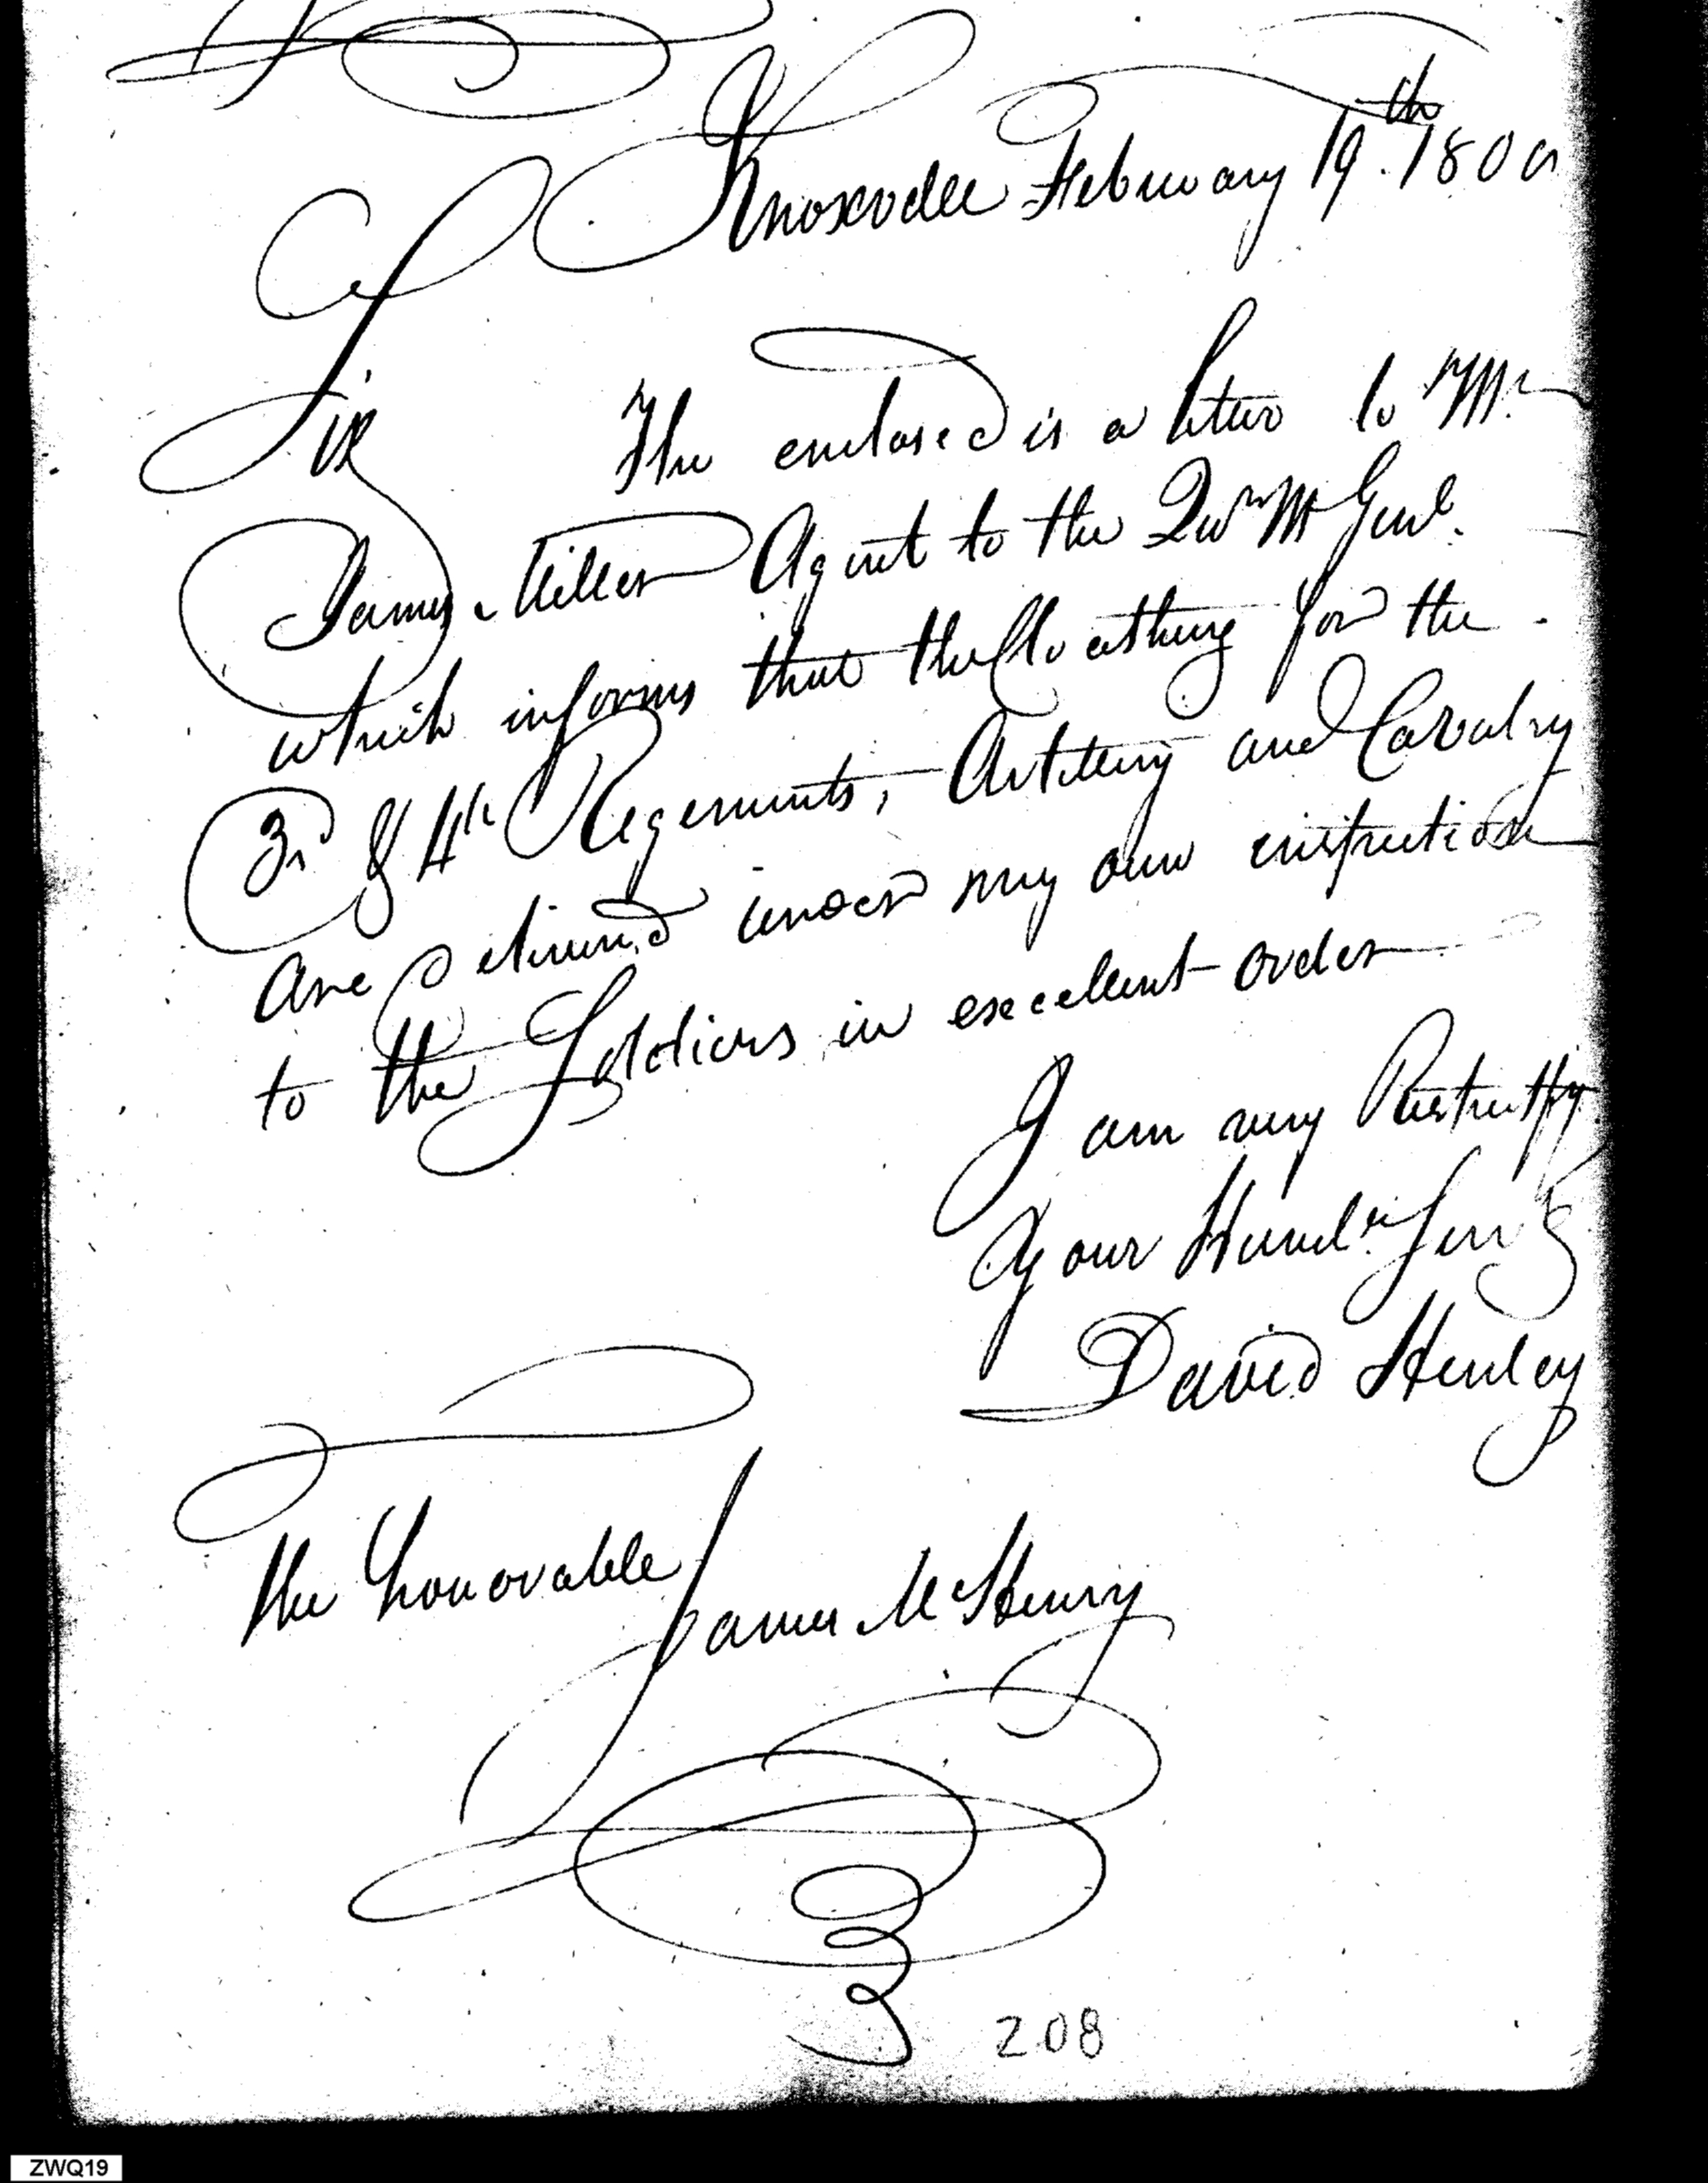 Knoxville February 19th. 1800
Sir
The enclosed is a letter to Mr.
James Miller Agent to the Qur M Genl.
which informs that the Cloathing for the
3rd & 4th Regements, Artillery and Cavalry
are delivered under my own inspection
to the Soldiers in excellent order
I am very Respectfy
Your Humle. Serv
David Henley
The Honorable
James McHenry
208
ZWQ19